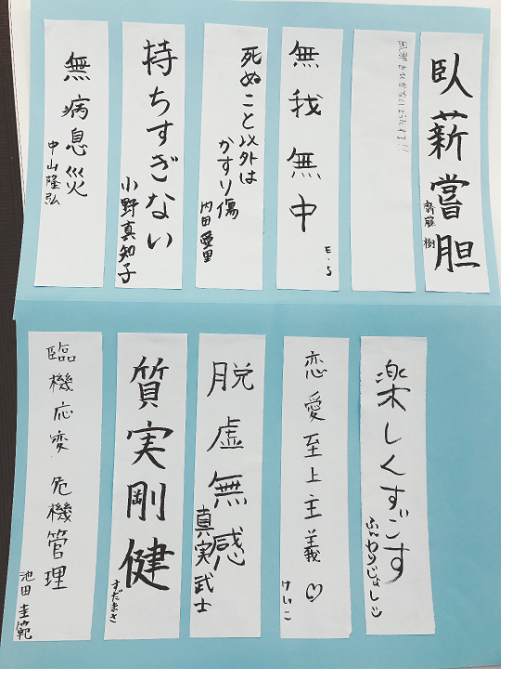 臥薪嘗胆
齊藤 樹
無我無中
E.S
死ぬこと以外は
かすり傷
内田愛里
持ちすぎない
小野真知子
無病息災
中山隆弘
楽しくすごす
ふんわりじょし
恋愛至上主義♡
けいこ
脱虚無感
真実武士
質実剛健
すだまさ
臨機応変 危機管理
池田圭範